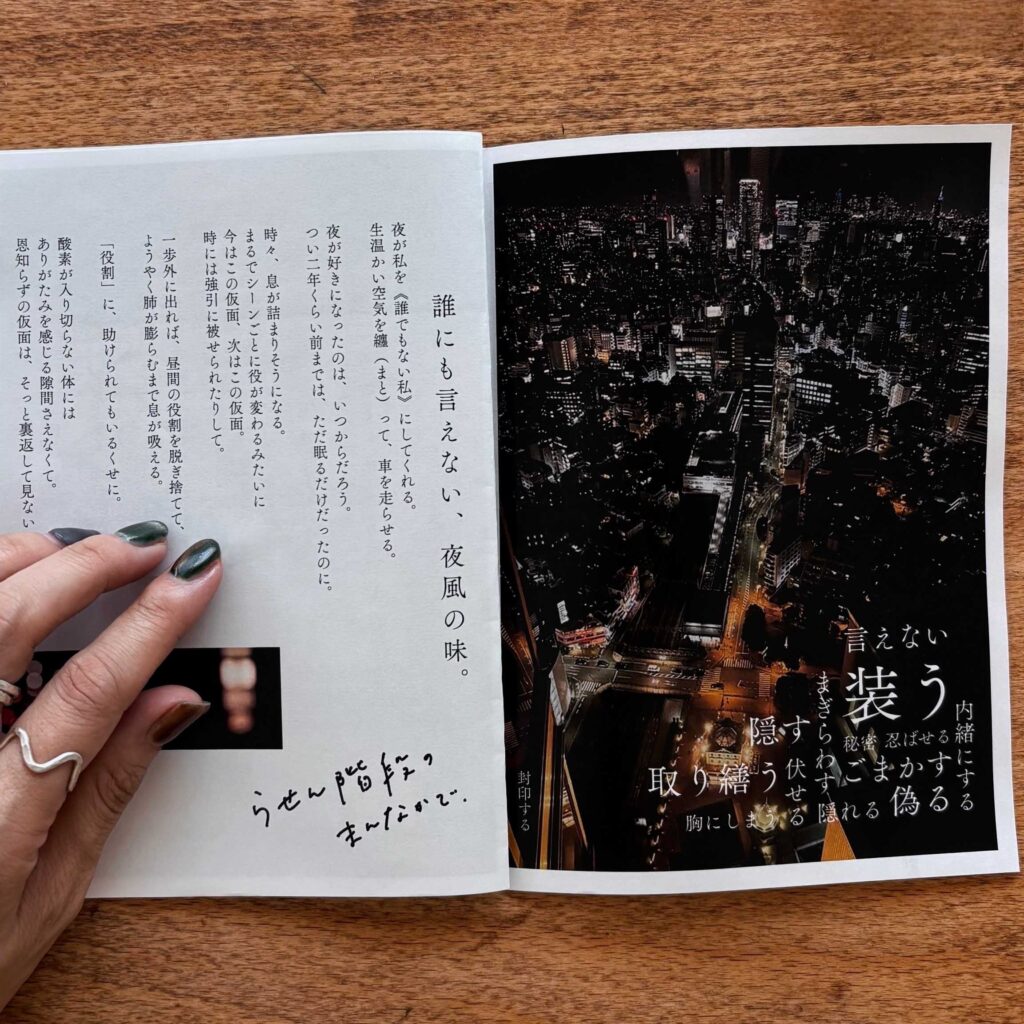 誰にも言えない、夜風の味。
夜が私を《誰でもない私》にしてくれる。
生温かい空気を纏（まと）って、車を走らせる。
夜が好きになったのは、いつからだろう。
つい二年くらい前までは、ただ眠るだけだったのに。
時々、息が詰まりそうになる。
まるでシーンごとに役が変わるみたいに
今はこの仮面、次はこの仮面。
時には強引に被せられたりして。
一歩外に出れば、昼間の役割を脱ぎ捨てて、
ようやく肺が膨らむまで息が吸える。
「役割」に、助けられてもいるくせに。
酸素が入り切らない体には
ありがたみを感じる隙間さえなくて。
恩知らずの仮面は、そっと裏返して見ない
らせん階段の
まんなかで.
言えない
装う
まぎらわす
隠す
秘密
忍ばせる
内緒にする
取り繕う
伏せる
ごまかす
胸にしまう
隠れる
偽る
封印する